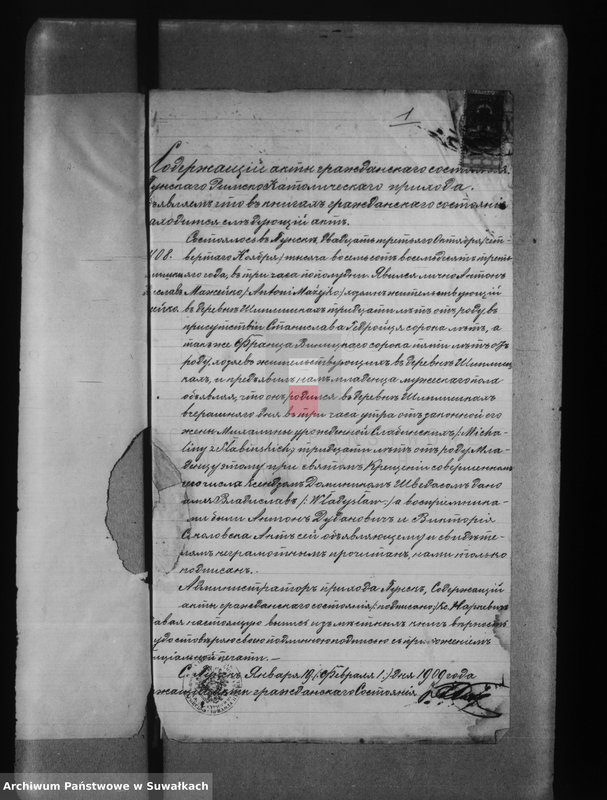 1
Содержащій акты гражданскаго состоянія
Пунскаго Римско-Католическаго прихода.
объявляетъ что въ книгахъ гражданскаго состоянія
находится слѣдующій актъ.
Состоялось въ Пунскъ, Двадцать третьяго Октября /чет-
вертаго Ноября/ тысяча восемьсотъ восемьдесятъ треть-
яго года, въ три часа пополудни. Явился лично Антонъ
Можейко /Antoni Możejko/ жительствующій
въ деревнѣ тридцати лѣтъ отъ роду, въ
присутствіи Станислава сорока лѣтъ, а
также Франца сорока пяти лѣтъ отъ
роду, жительствующихъ въ деревнѣ
кахъ, и предъявилъ намъ младенца мужескаго пола
объявляя, что онъ родился въ деревнѣ
вчерашняго дня въ три часа утра отъ законной его
жены Михалины урожденной Слабинскихъ /: Micha-
liny z Słabinskich:/ тридцати лѣтъ отъ роду. Мла-
денцу этому при святомъ Крещеніи совершенномъ
числа Ксендзомъ Доминикомъ Шведасомъ дано
имя Владиславъ /: Władysław :/ а воспріемника-
ми были Антонъ и Викторія
Актъ сей объявляющему и свидѣте-
лямъ неграмотнымъ прочитанъ, нами только
подписанъ. -
Администраторъ прихода Пунскъ, Содержащій
акты гражданскаго состоянія /: подписано :/ Кс.
настоящую выпись изъ книгъ вѣрность
удостовѣряю своею подписью съ приложеніемъ
печати. —
С. Пунскъ Января 19 /: Февраля 1:/ дня 1909 года
акты гражданскаго Состоянія
Archiwum Państwowe w Suwałkach